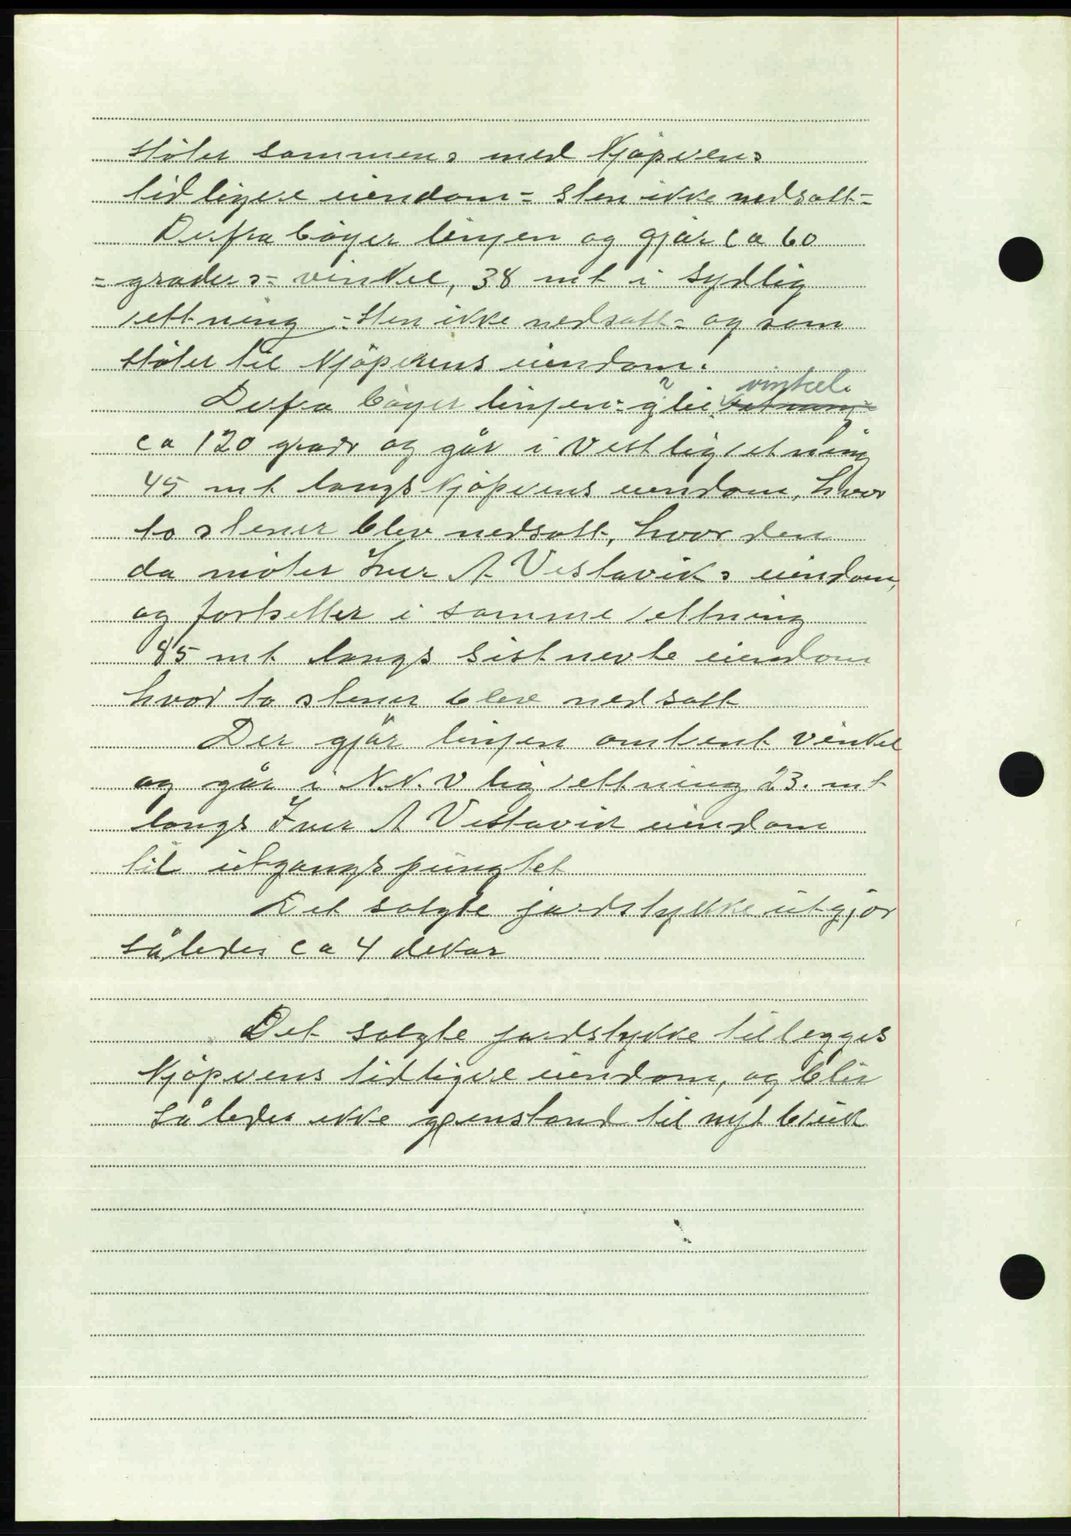 støter sammens med Kjøperens
tidligere eiendom = sten ikke nedsatt =
Derfra bøyer linjen og gjør ca 60
= graders = vinkel, 38 mt i sydlig
rettning = sten ikke nedsatt = og som
støter til Kjøperens eiendom.
Derfra bøyer linjen = vinkel.
ca 120 grader og går i vestlig retning
45 mt langs Kjøperens eiendom, hvor
to stener blev nedsatt, hvor den
da møter Iver A. Vestaviks eiendom,
og fortsetter i samme rettning
85 mt langs sistnevte eiendom
hvor to stener bleve nedsatt
Der gjør linjen omtent vinkel
og går i N.N.V lig rettning 23. mt
langs Iver A Vestavik eiendom
til utgangspungtet
Det solgte jordstykke utgjør
således ca 4 dekar
Det solgte jordstykke tillegges
Kjøperens tidligere eiendom, og blir
således ikke gjenstand til nyt bruk